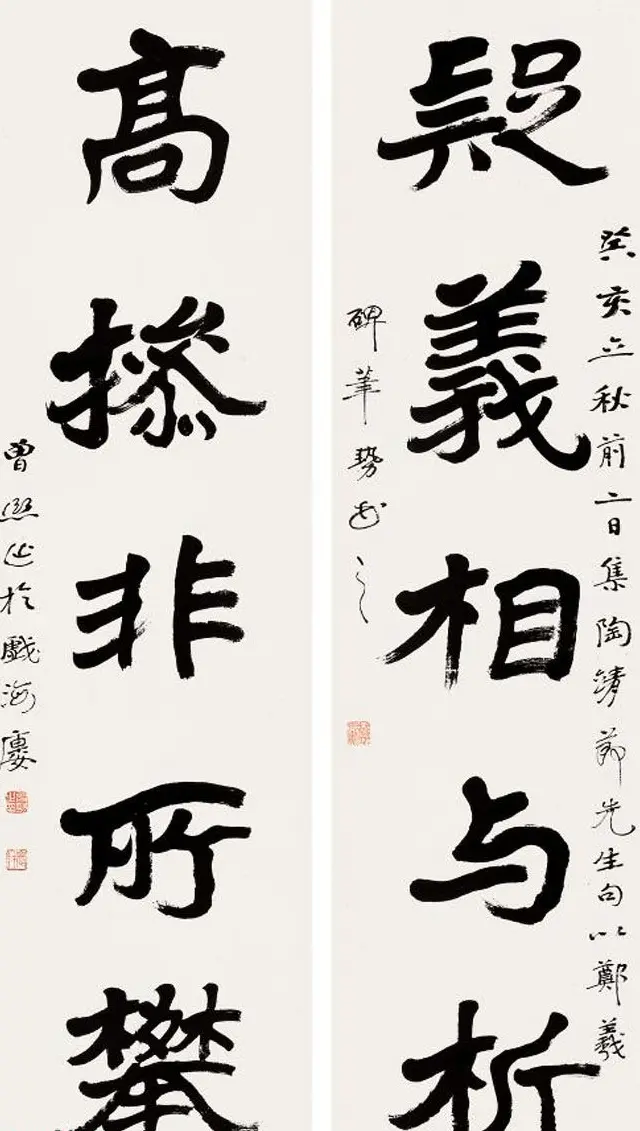 癸亥立秋前二日集陶靖節先生句以鄭羲
疑義相与析
碑筆勢為之
高操非所攀
曾熙於戲海廔